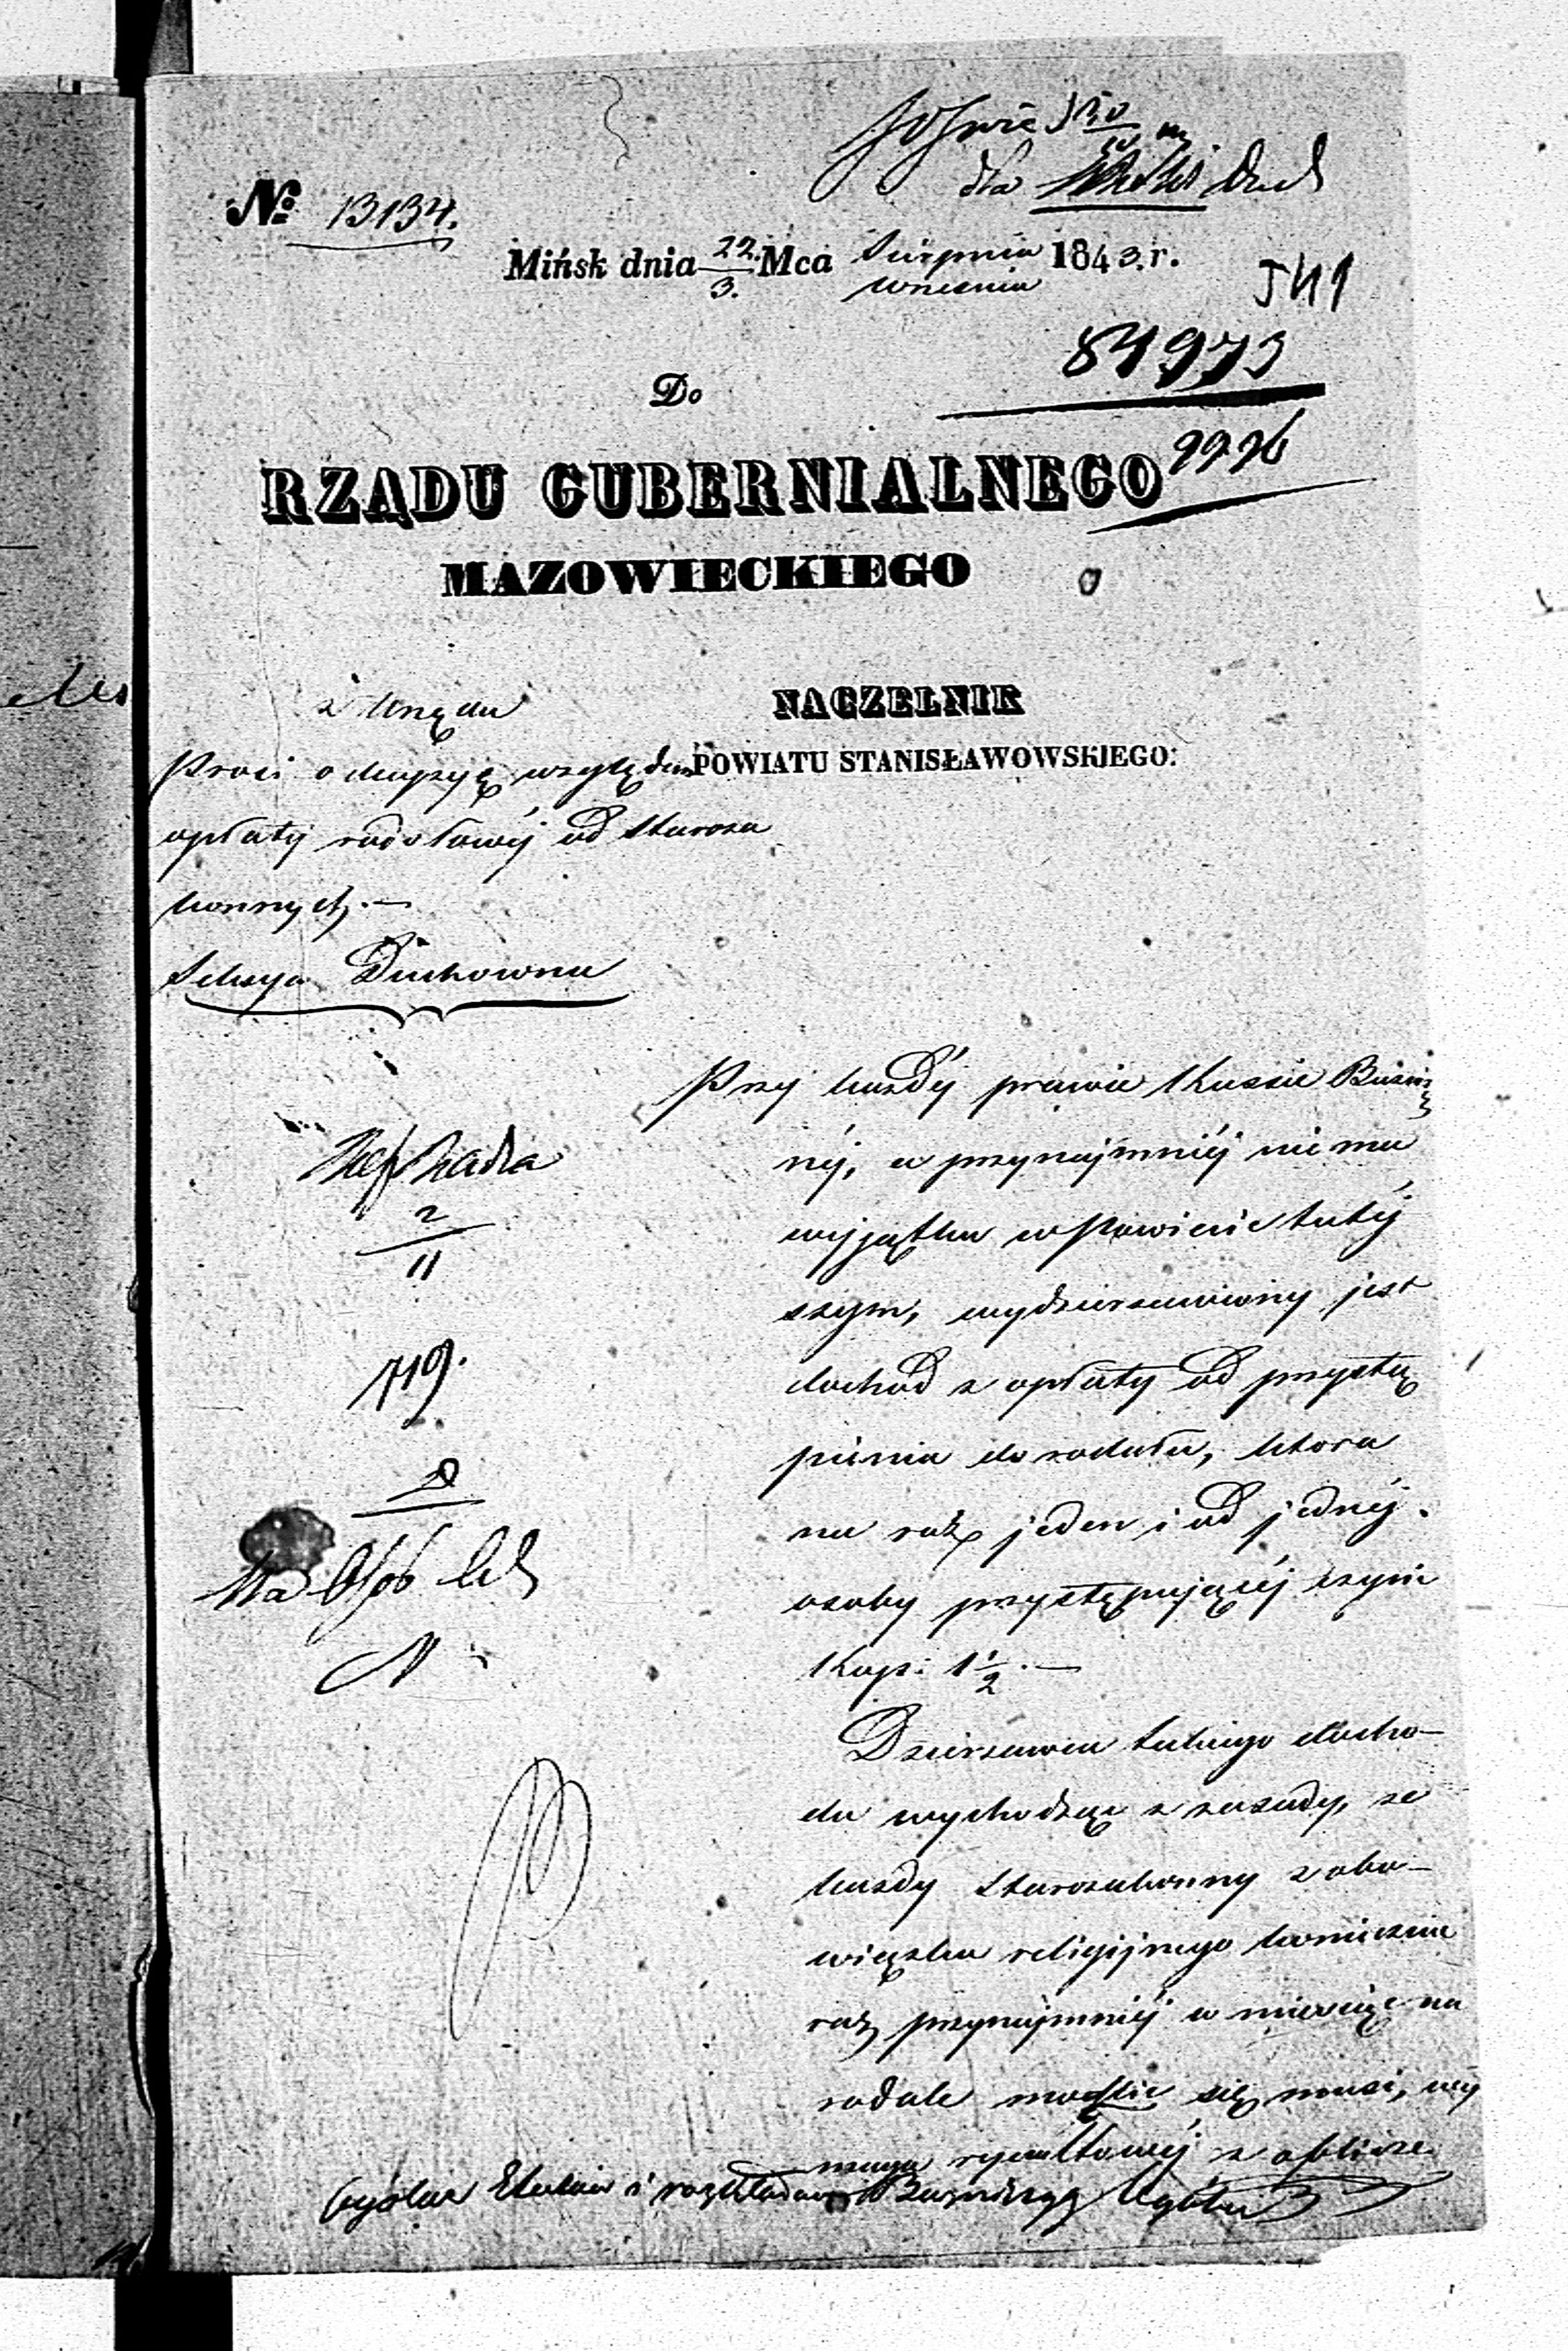 dla
№ 13134.
Mińsk dnia 22/3. Mca Sierpnia/września 1843. r.
541
84973
Do
RZĄDU GUBERNIALNEGO
MAZOWIECKIEGO
NACZELNIK
POWIATU STANISŁAWOWSKIEGO:
z Urzędu
Prosi o decyzyę względem
opłaty rodałowéj od Staroza
konnych.—
Sekcya Duchowna
2/11
719.
Przy każdéj prawie Kassie Bużni
néj, a przynajmniéj niema
wyjątku w Powiecie tutéj
szym, wydzierżawiony jest
dochód z opłaty od przystą
pienia do rodału, która
na raz jeden i od jednéj
osoby przystępującéj czyni
Kop: 1½.—
Dzierżawca takiego docho-
du wychodząc z zasady, że
każdy Starozakonny z obo-
wiązku religijnego koniecznie
raz przynajmniéj w miesiąc na
rodale modlić się musi, wy
maga ryczałtowéj